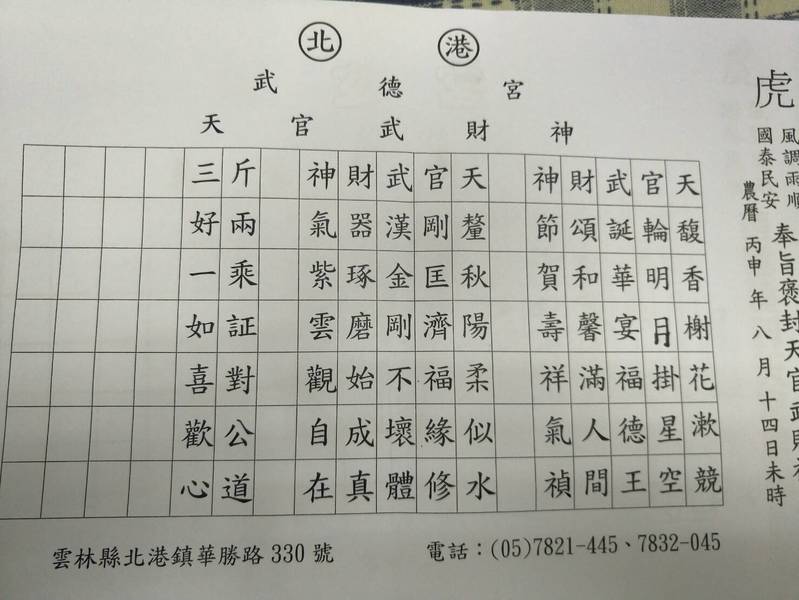 北 港
武德宮
天官武財神
虎
風調雨順
國泰民安
奉旨褒封天官武財
農曆 丙申年八月十四日未時
天馥香榭花漱競
官輪明月掛星空
武誕華宴福德王
財頌和馨滿人間
神節賀壽祥氣禎
天釐秋陽柔似水
官剛匡濟福緣修
武漢金剛不壞體
財器琢磨始成真
神氣紫雲觀自在
斤兩乘証對公道
三好一如喜歡心
雲林縣北港鎮華勝路330號
電話：(05)7821-445、7832-045